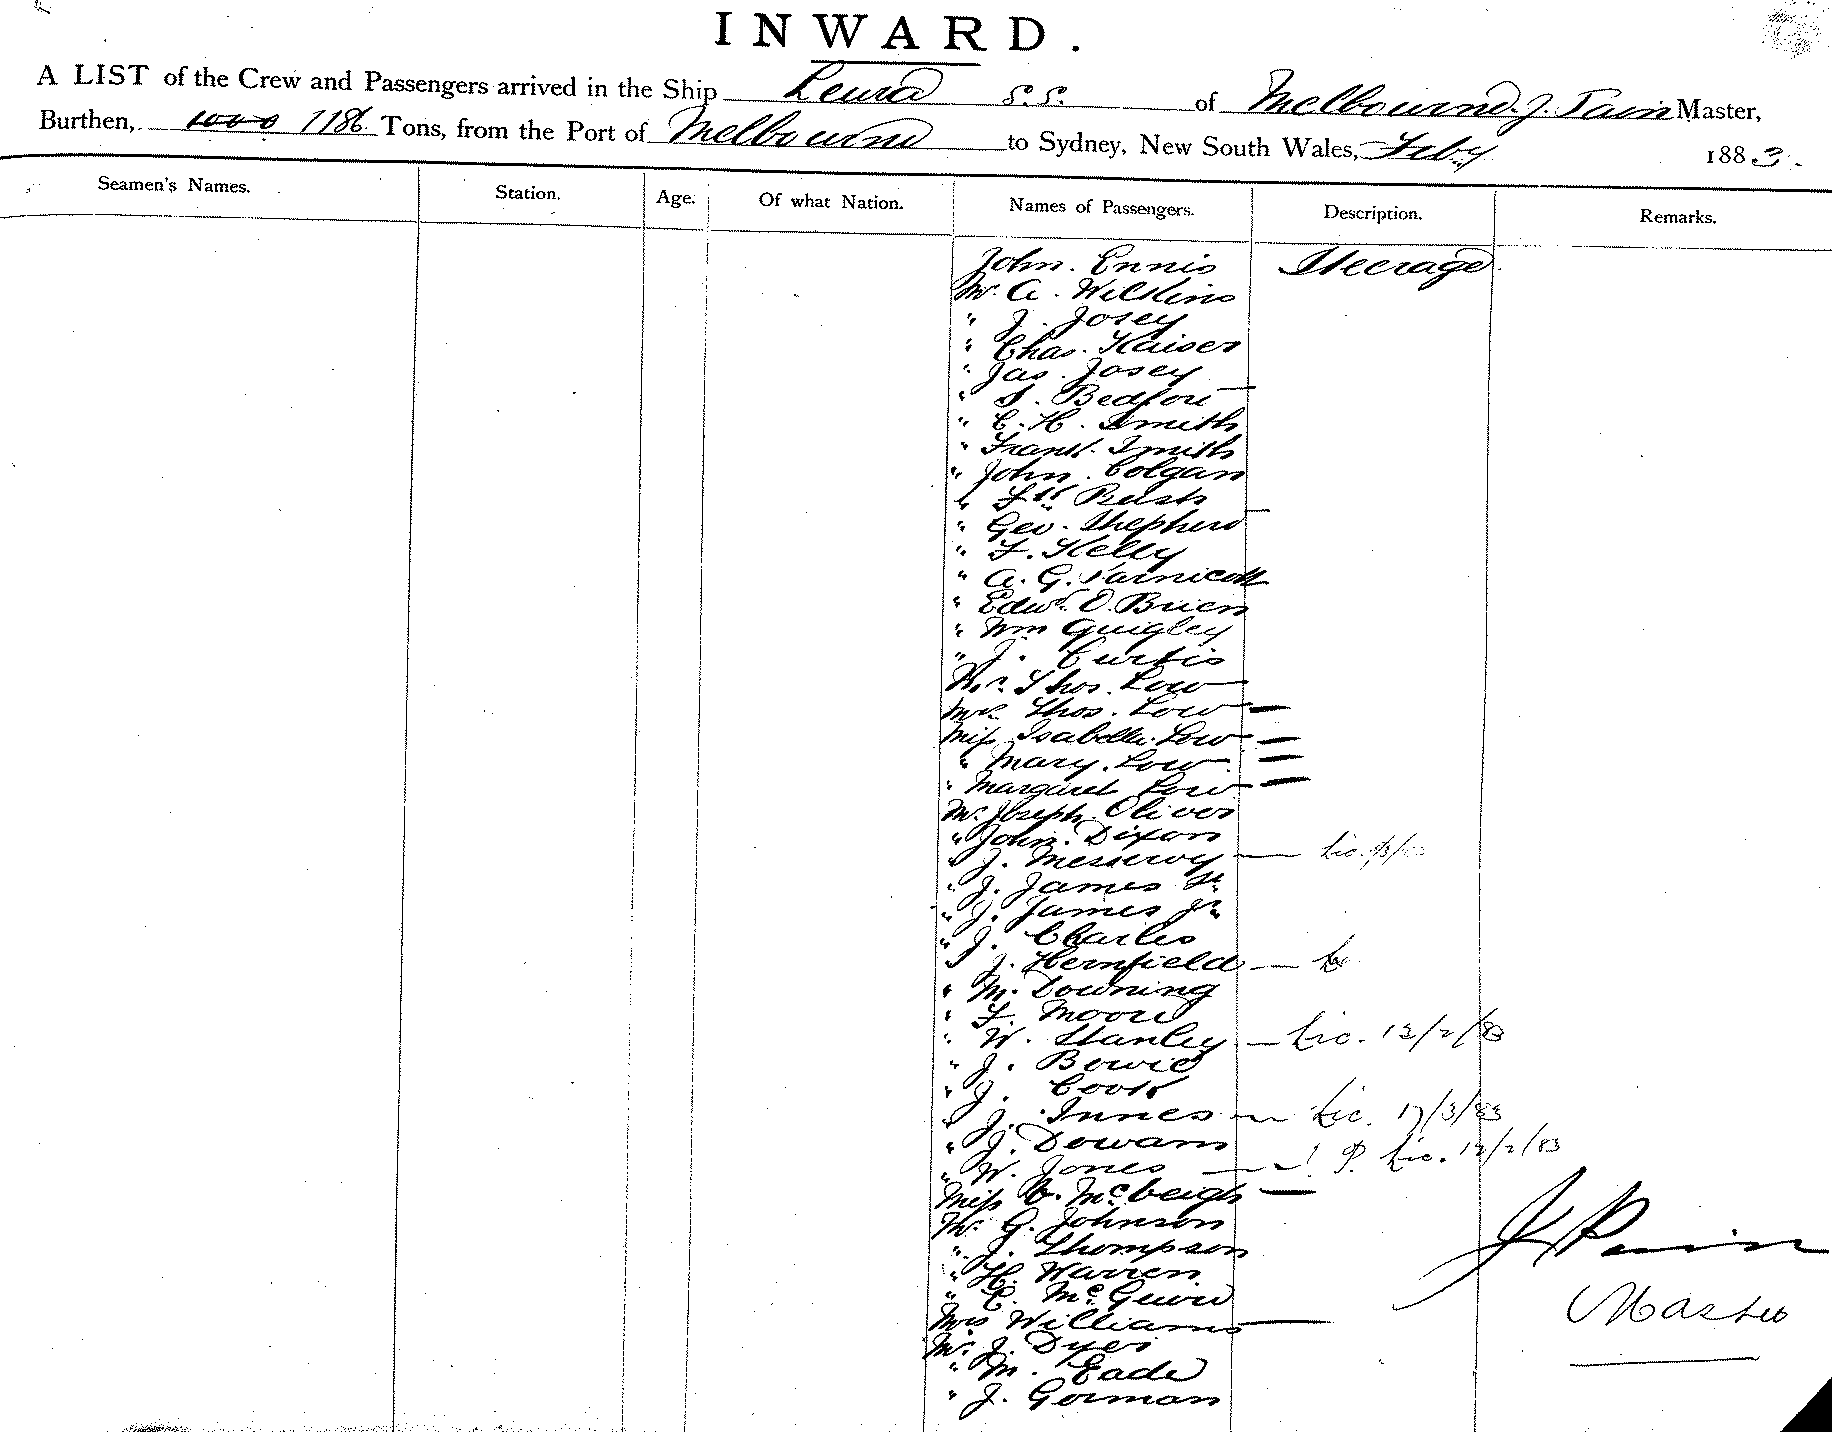 INWARD.
A LIST of the Crew and Passengers arrived in the Ship Leura S.S. of Melbourne. J. Pain Master,
Burthen, 1000 1186 Tons, from the Port of Melbourne to Sydney, New South Wales, Feby 1883.
Seamen's Names. Station. Age. Of what Nation. Names of Passengers. Description. Remarks.
John. Ennis Steerage
Mr. A. Wilkins
" J. Josey
" Chas. Kaiser
" Jas. Josey
" S. Bedford
" C. H. Smith
" Frank. Smith
" John. Colgan
" Bush
" Geo. Shepherd
" F. Kelly
" A. G.
" Edwd. O. Brien
" Wm Quigley
" J. Curtis
Mr. Thos. Low
Mrs Thos. Low
Miss Isabella. Low
" Mary. Low
" Margaret Low
Mr. Joseph. Oliver
" John. Dixon
" J. Messervy Lic.
" J. James Sr.
" J. James Jr.
" J. Charles
" J. Hernfield
" M. Downing
" F. Moore
" W. Stanley Lic. 12/2/83
" J. Bowie
" J. Cook
" J. Innes Lic. 17/3/83
" J. Dowam
" W. Jones P. Lic. 12/2/83
Miss C. McVeigh
Mr. G. Johnson
" J. Thompson
" H. Warren
" C. McGuire
Mrs Williams
Mr. J. Dyer
" M. Eade
" J. Gorman
J Pain
Master